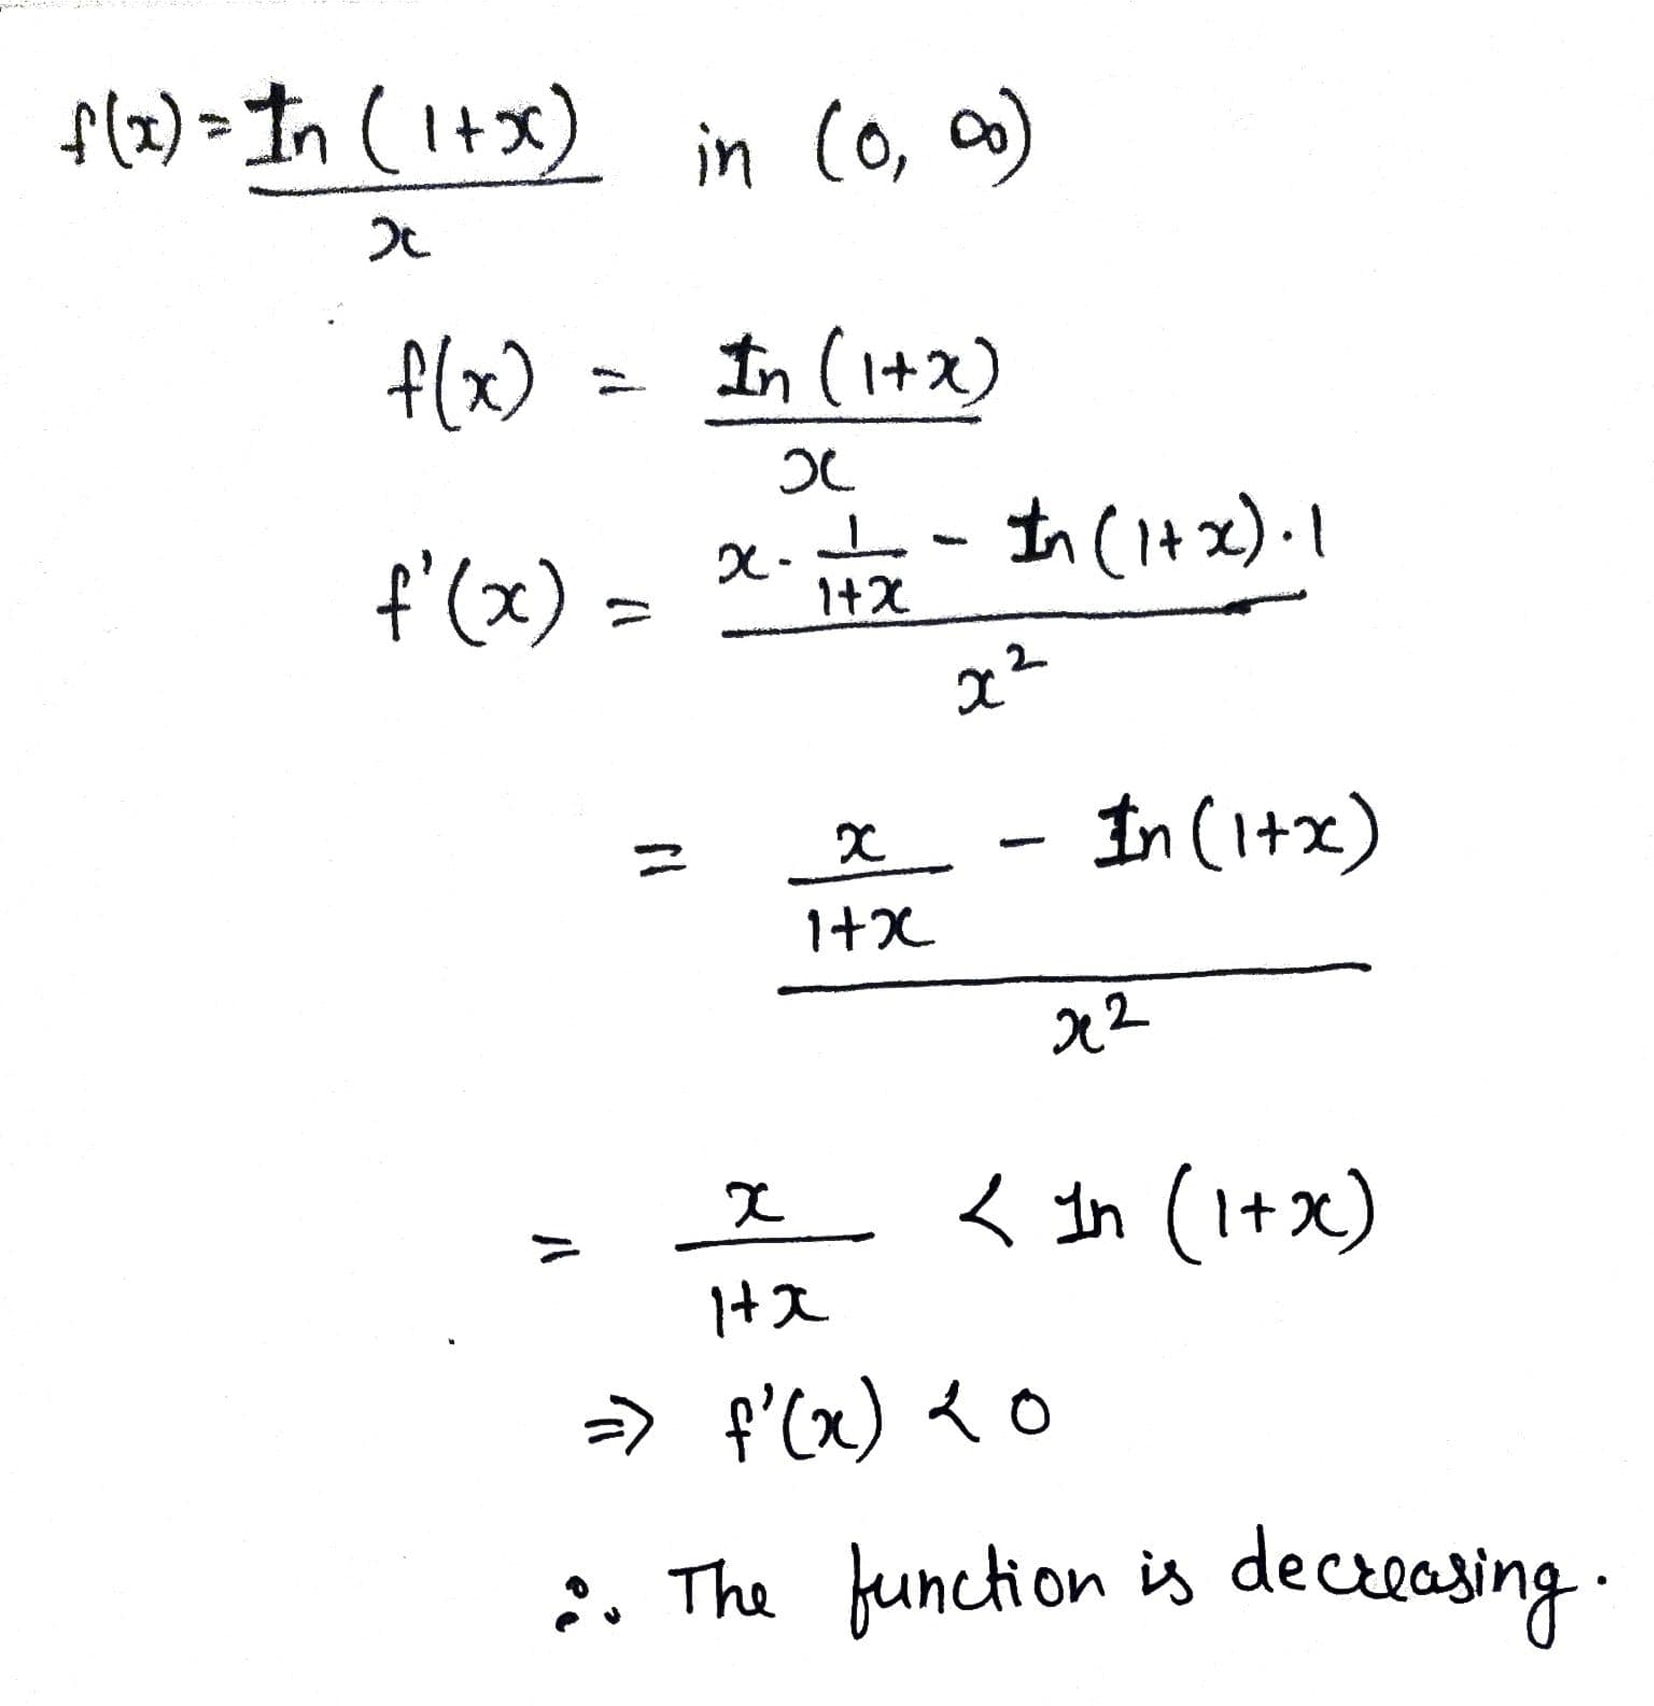 f(x) = In (1+x) / x in (0, ∞)
f(x) = In (1+x) / x
f'(x) = (x · 1/(1+x) - In (1+x) · 1) / x²
= (x/(1+x) - In (1+x)) / x²
= x/(1+x) < In (1+x)
⇒ f'(x) < 0
∴ The function is decreasing.